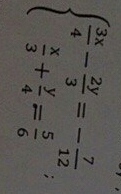 { 3x/4 − 2y/3 = − 7/12 ;
x/3 + y/4 = 5/6